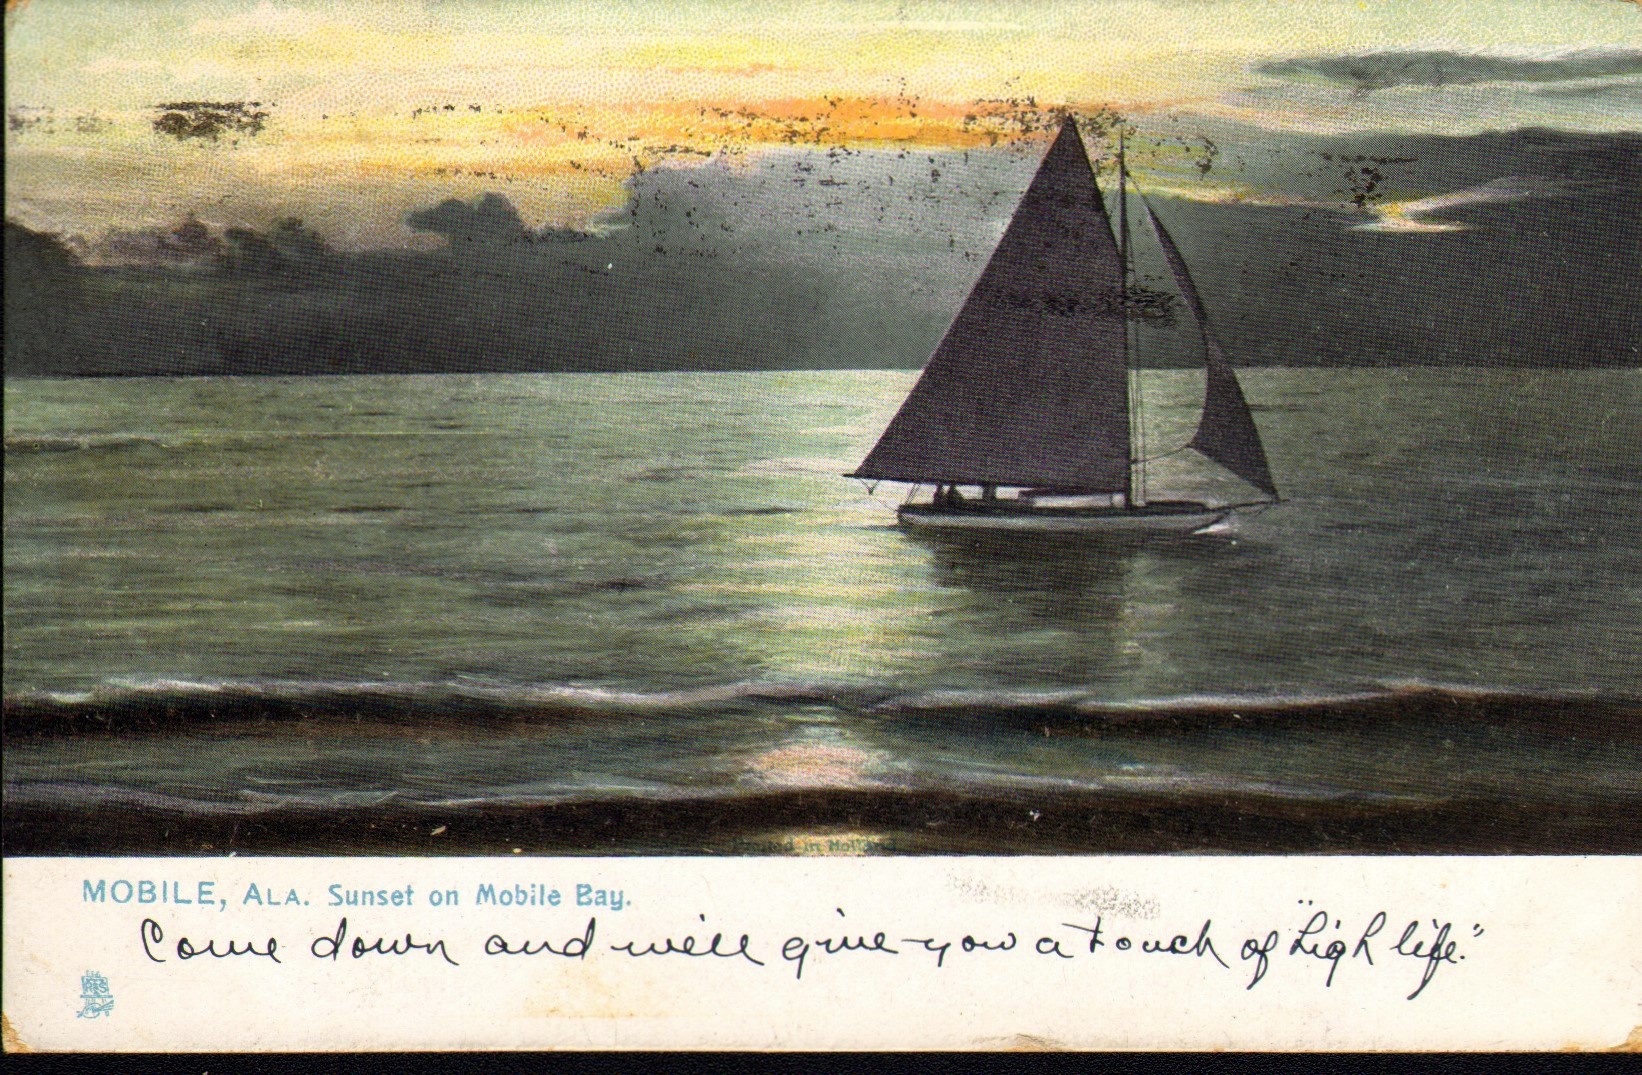 Printed in Holland
MOBILE, ALA. Sunset on Mobile Bay.
Come down and we'll give you a touch of "high life."